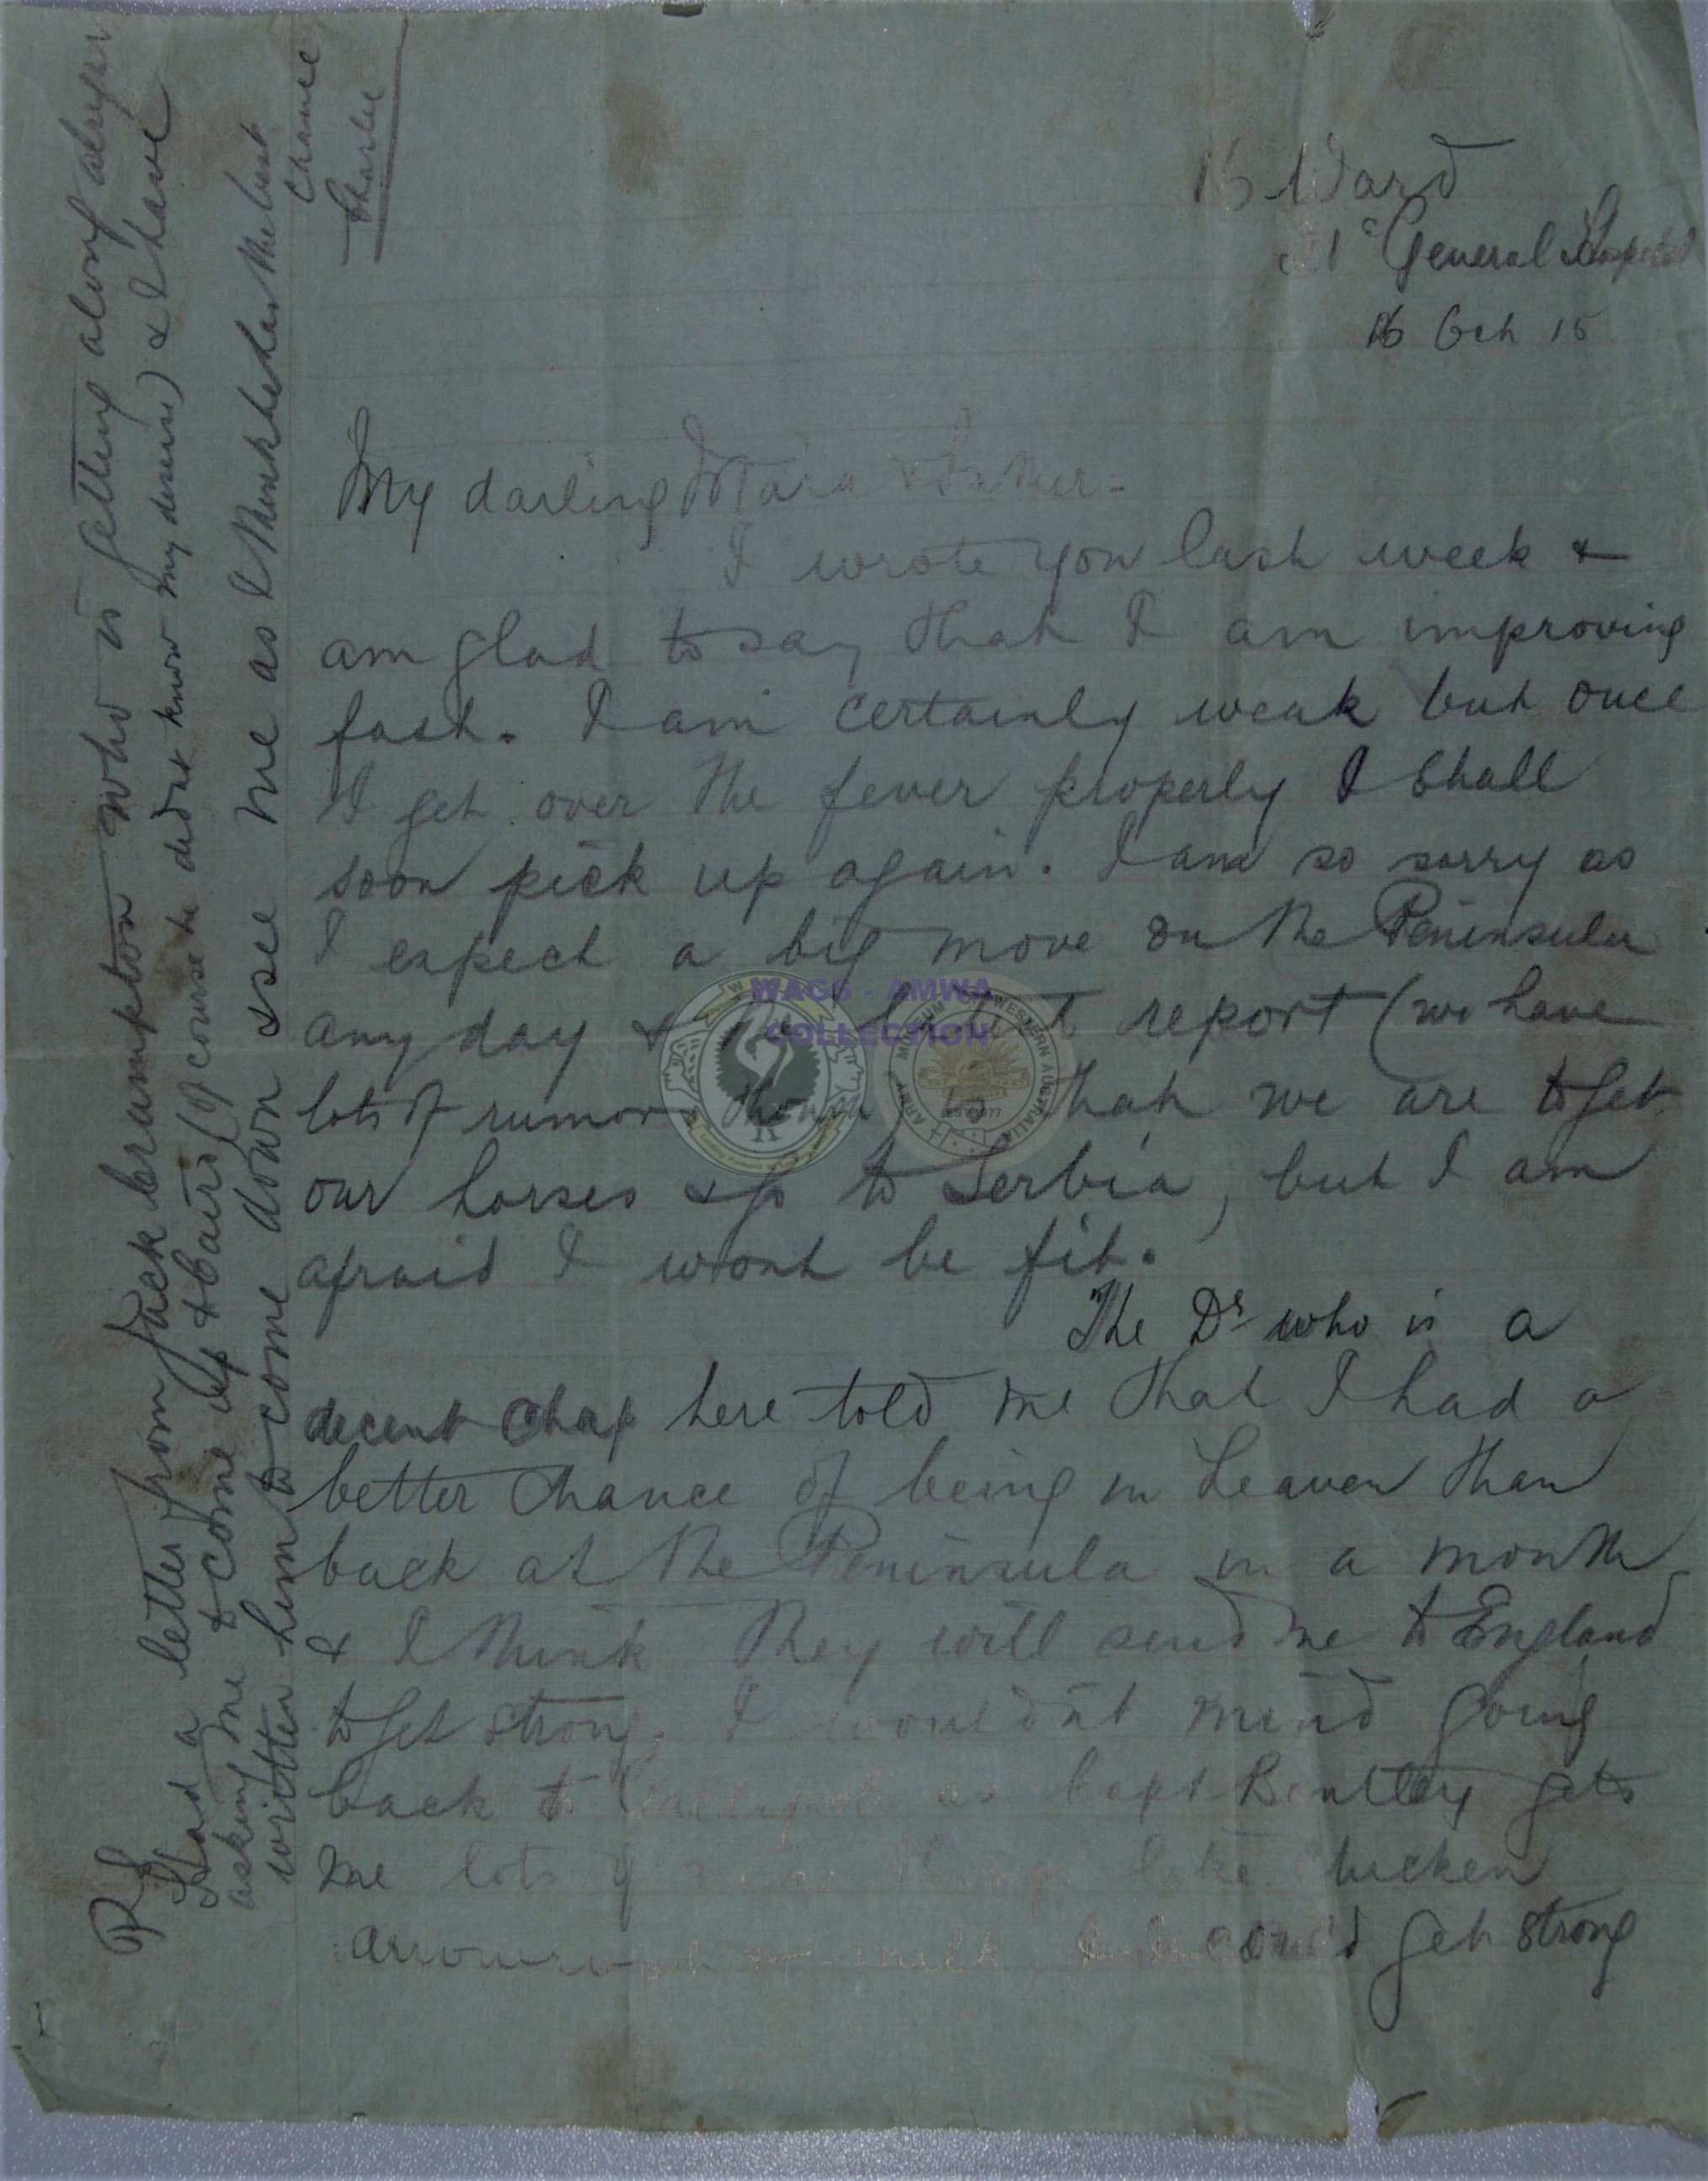 16 Ward
21 General Hospital
16 Oct 15
My darling Mara & Father -
I wrote you last week &
am glad to say that I am improving
fast. I am certainly weak but once
I get over the fever properly I shall
soon pick up again. I am so sorry as
I expect a big move on the Peninsula
any day & the latest report (we have
lots of rumors though is that we are to get
our horses & go to Serbia, but I am
afraid I wont be fit.
The Dr who is a
decent chap here told me that I had a
better chance of being in heaven than
back at the Peninsula in a month
& I think they will send me to England
to get strong. I wouldnt mind going
back to Gallipoli as Capt Bentley gets
me lots of nice things like chicken
arrowroot & milk, & could get strong
PS
Had a letter from Jack brampton who is getting along
asking me to come up to (of course he didnt know my desease) & I have
written him to come down & see me as I think he has the best
chance
Charlie
WAGS - AMWA
COLLECTION
ARMY MUSEUM OF WESTERN AUSTRALIA